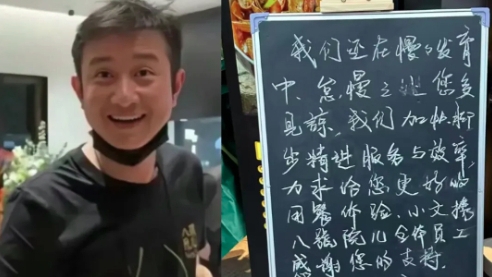 我们还在慢慢发育
中、怠慢之处您多
见谅、我们加快脚
步精进服务与效率
力求给您更好的
用餐体验.小文携
八张院儿全体员工
感谢您的支持.